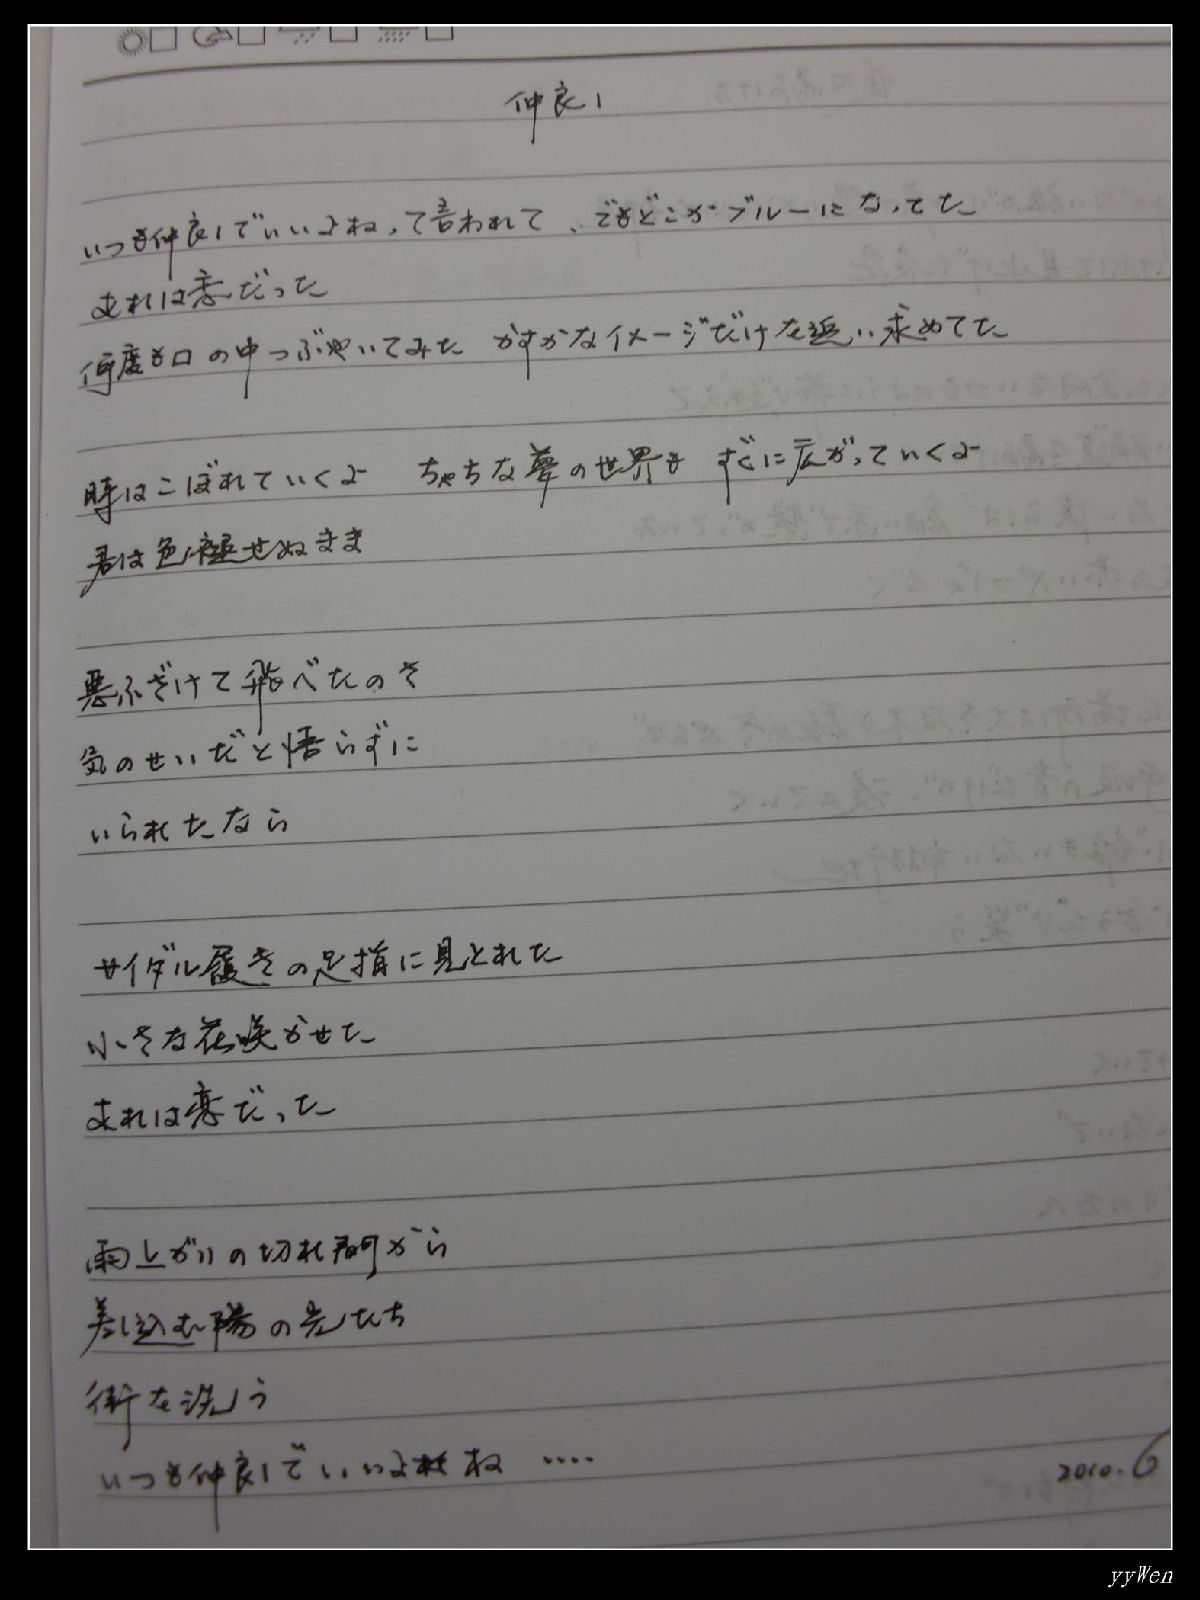 仲良し
いつも仲良しでいいよね、って言われて、でもどこかブルーになってた
それは恋だった
何度も口の中つぶやいてみた かすかなイメージだけを追い求めてた
時はこぼれていくよ ちゃちな夢の世界も すぐに広がっていくよ
君は色褪せぬまま
悪ふざけて飛べたのさ
気のせいだと悟らずに
いられたなら
サイダル履きの足指に見とれた
小さな花咲かせた
それは恋だった
雨上がりの切れ間から
差し込む陽の光たち
街を洗う
いつも仲良しでいいよね ····
2010.6
yyWen